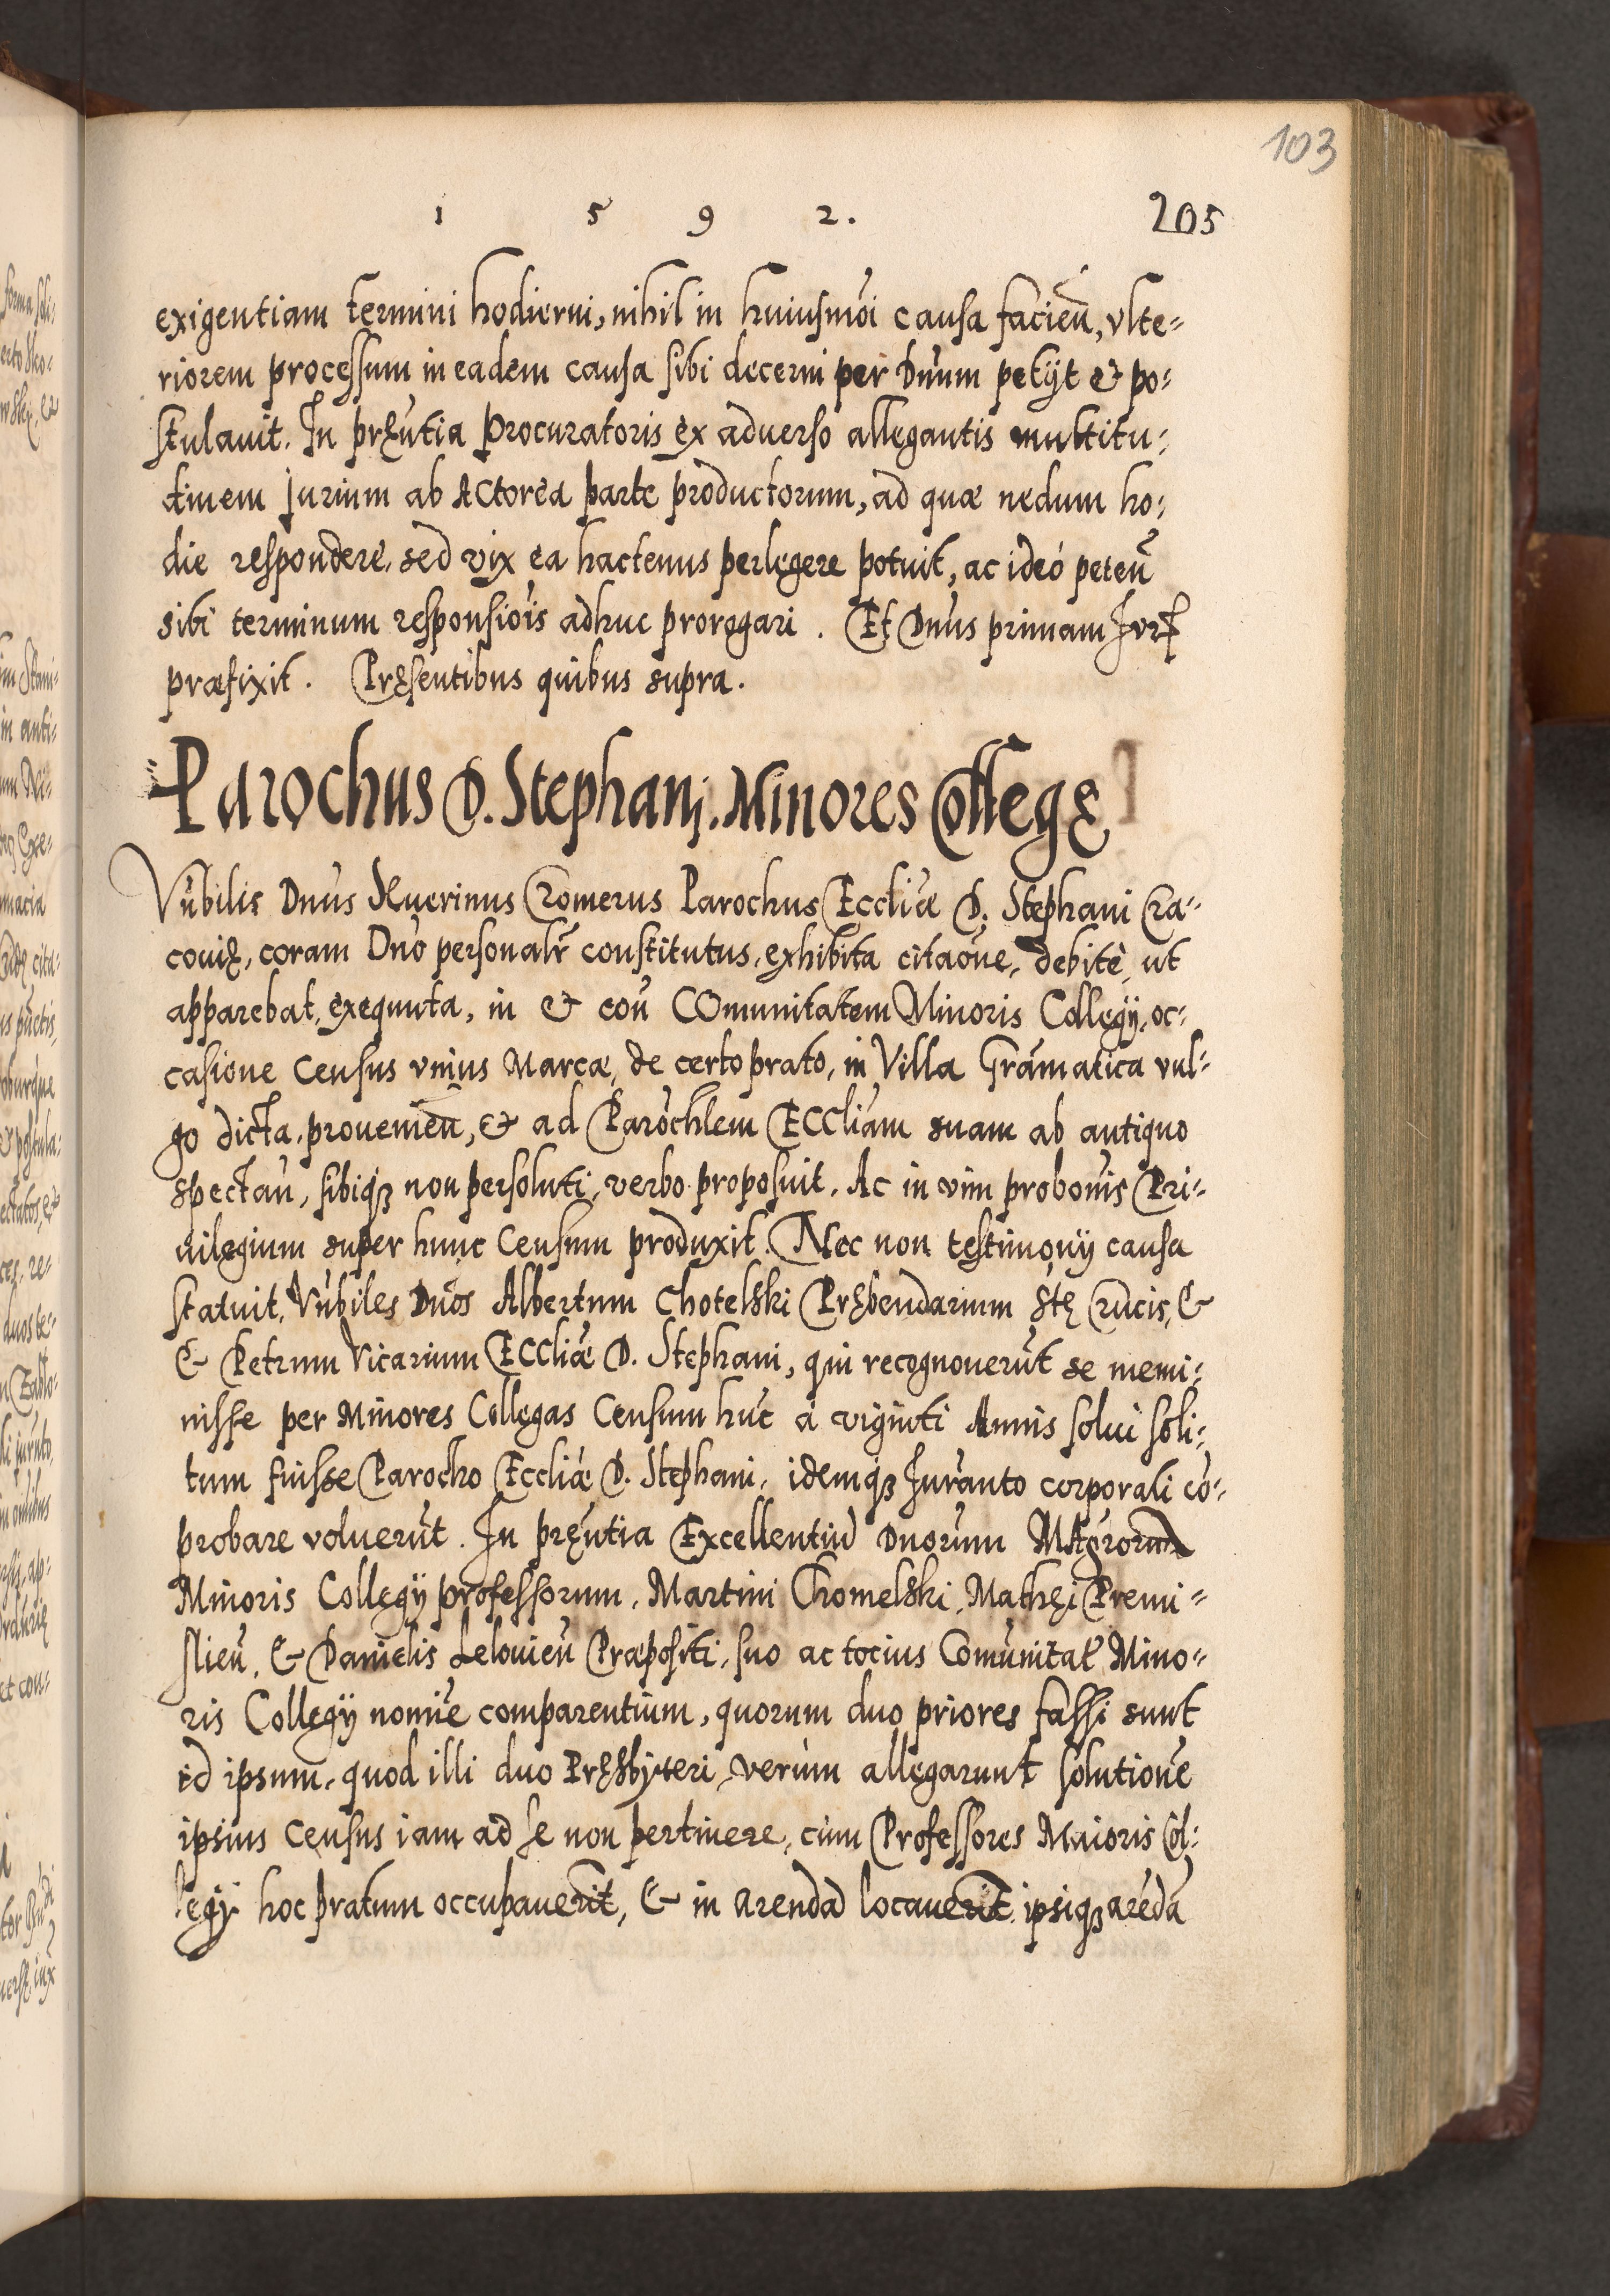 103
1 5 9 2. 205
exigentiam termini hodierni, nihil in huiusmōi causa facieñ, vlte-
riorem processum in eadem causa sibi decerni per Dnum petijt & po-
stulauit. In pręntia Procuratoris ex aduerso allegantis multitu-
dinem Jurium ab Actorea parte productorum, ad quæ nedum ho-
die respondere, sed vix ea hactenus perlegere potuit, ac ideò peteñ
sibi terminum responsiōis adhuc prorogari. Et Dnus primam Jurf
præfixit. Pręsentibus quibus supra.
Parochus D. Stephanj. Minores Collegę
Vnbilis Dnus Xuerinus Cromerus Parochus Eccliæ D. Stephani Cra-
couię, coram Dno personalr constitutus, exhibita citaōne, debitè, ut
apparebat, exequuta, in & coñ COmunitatem Minoris Collegij, oc-
casione Census vnius Marcæ, de certo prato, in Villa Gramatica vul-
go dicta, prouenieñ, & ad Parochlem ECCliam suam ab antiquo
spectañ, sibiqʒ non persoluti, verbo proposuit. Ac in vim probōnis Pri-
uilegium super hunc Censum produxit. Nec non testimonij causa
statuit, Vnbiles Dnos Albertum Chotelski Prębendarium Stę Crucis, &
& Petrum Vicarium ECCliæ D. Stephani, qui recognouerūt se memi-
nisse per Minores Collegas Censum hūc à viginti Annis solui soli-
tum fuisse Parocho Eccliæ D. Stephani, idemqʒ Jurānto corporali cō-
probare voluerūt. In pręntia Excellentiū Dnorum MAgrorum
Minoris Collegij professorum, Martini Chomelski, Mathęi Premi-
slieñ, & Danielis Lelouieñ Præpositi, suo ac tocius Comunitat Mino-
ris Collegij nomīe comparentium, quorum duo priores fassi sunt
id ipsum, quod illi duo Pręsbyteri, verùm allegarunt solutionē
ipsius Census iam ad se non pertinere, cùm Professores Maioris Col-
legij hoc pratum occupauerīt, & in arendā locauerīt, ipsiqʒ arēdā